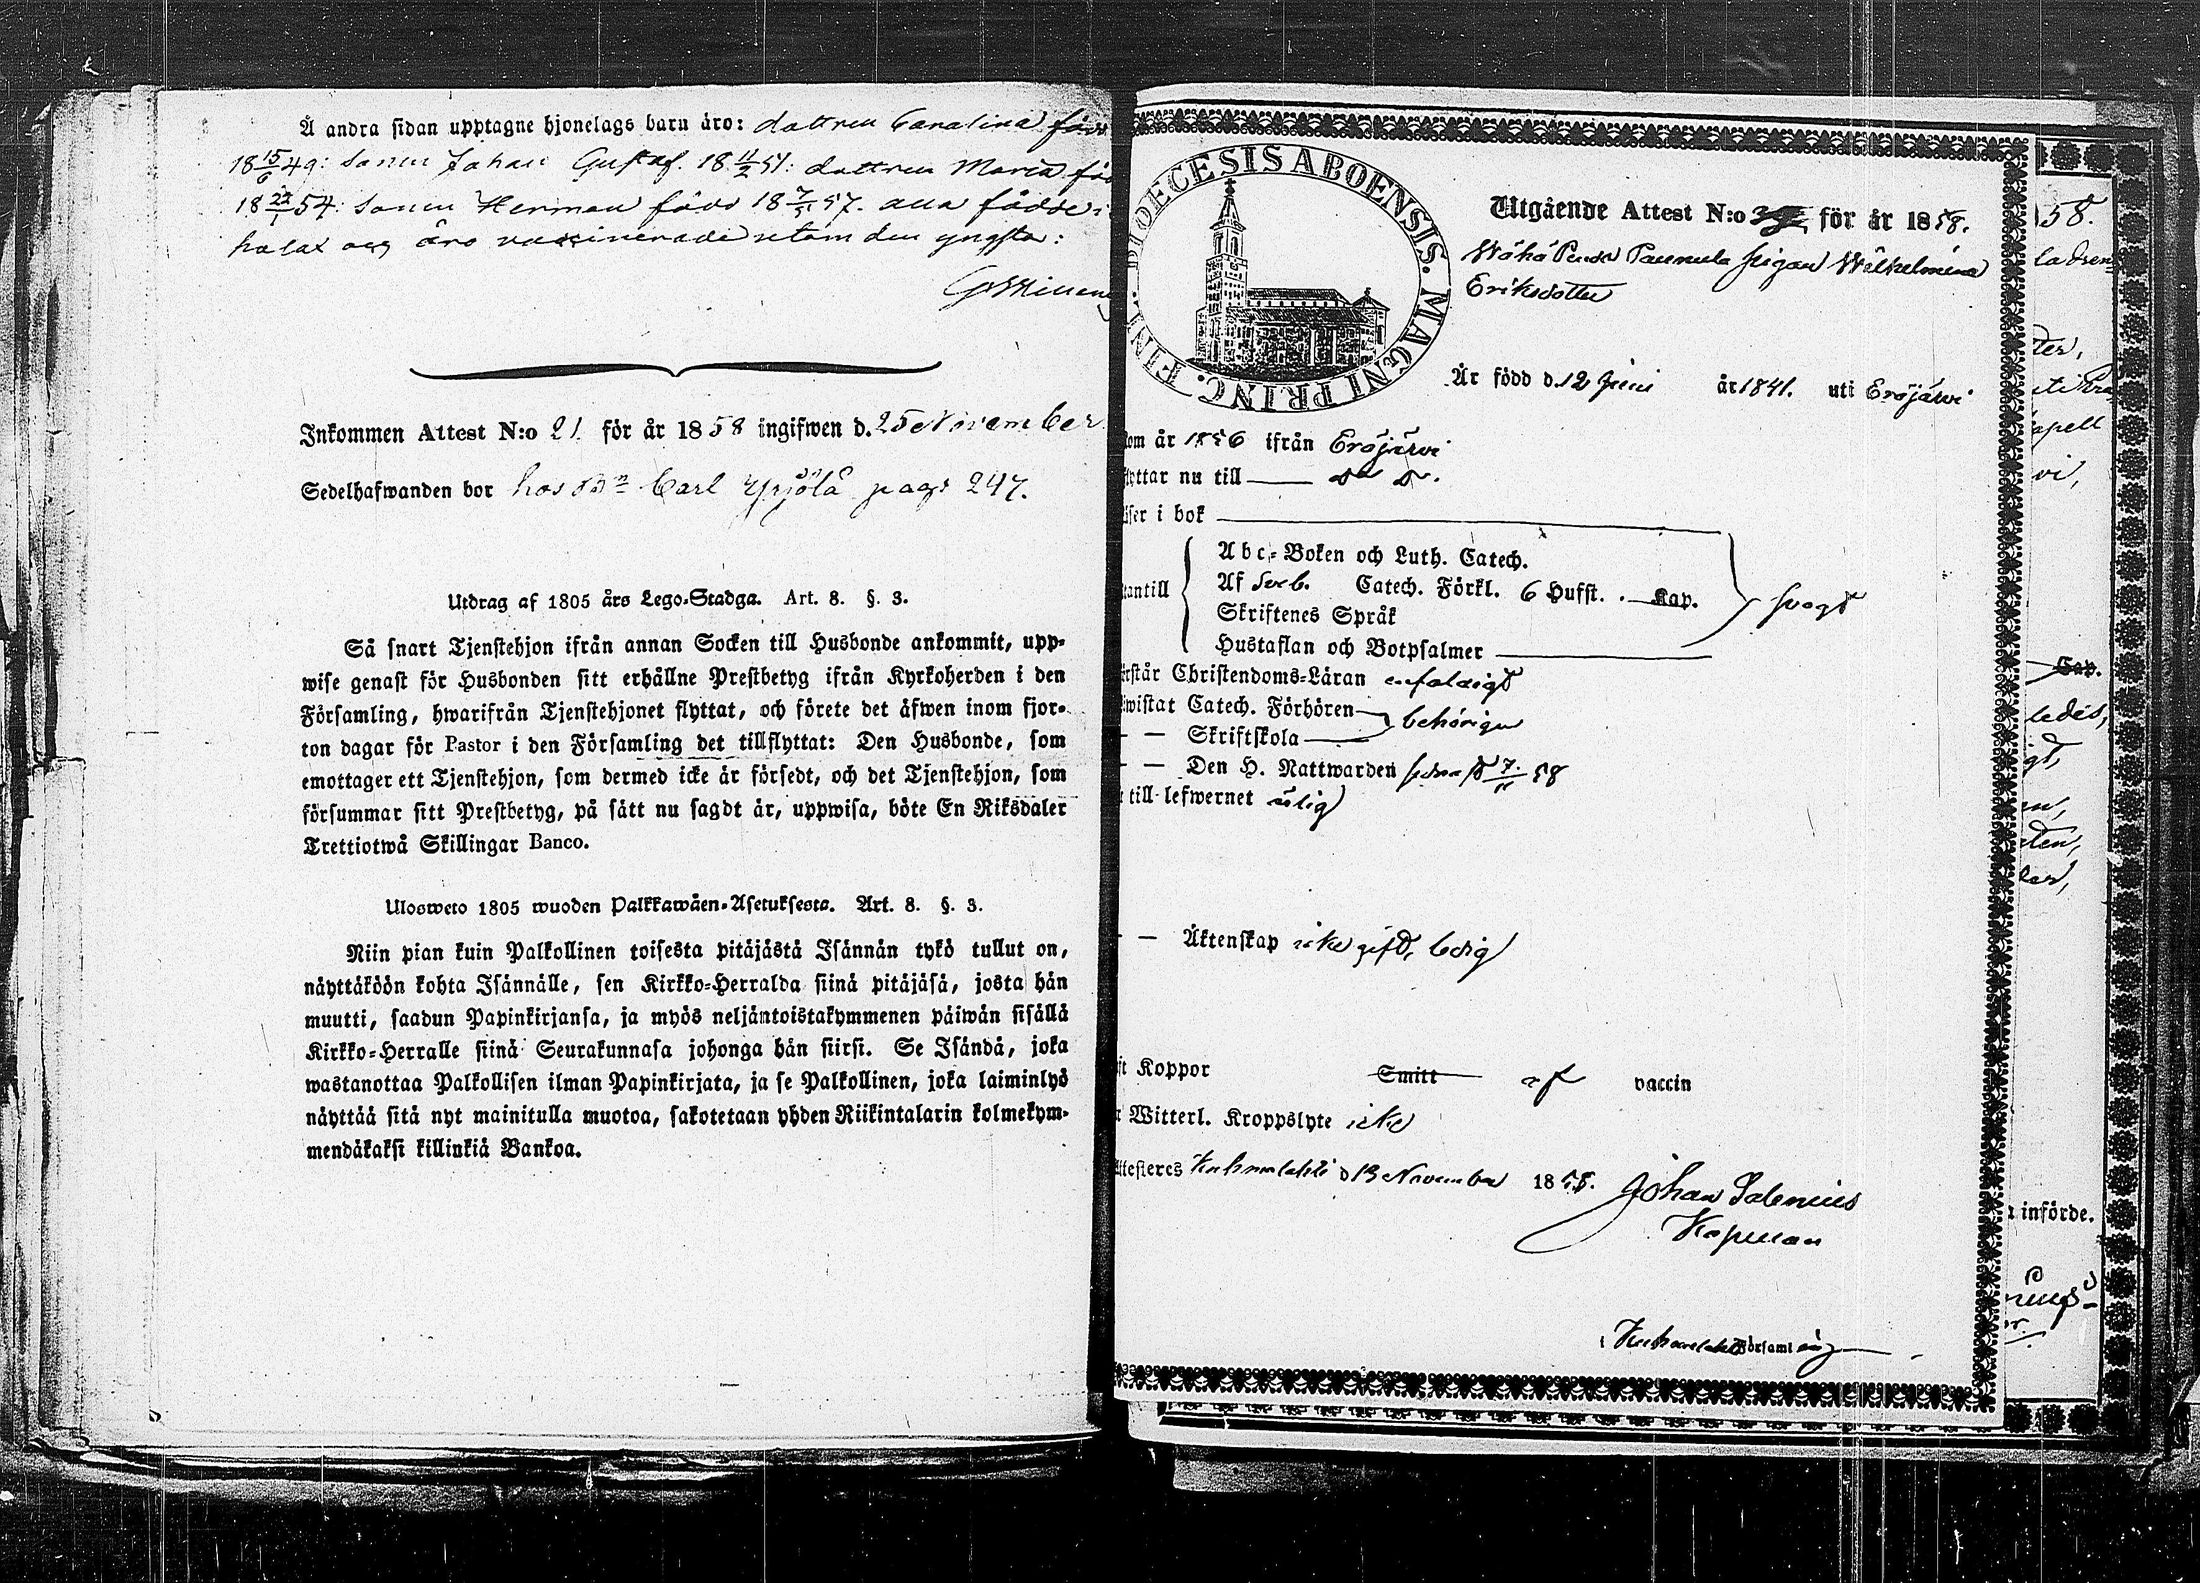 Å andra sidan upptagne hjonelags barn äro: dottren Carolina född
18 15/6 49: sonen Johan Gustaf. 18 11/2 51: dottren Maria
18 22/1 54: sonen Herman född 18 7/5 57. alla födde i
äro vaccinerade utom den yngsta:
Inkommen Attest N:o 21 för år 1858 ingifwen d. 25 November
Sedelhafwanden bor hos Carl Yrjölä pag: 247.
Utdrag af 1805 års Lego-Stadga. Art. 8. §. 3.
Så snart Tjenstehjon ifrån annan Socken till Husbonde ankommit, upp-
wise genast för Husbonden sitt erhållne Prestbetyg ifrån Kyrkoherden i den
Församling, hwarifrån Tjenstehjonet flyttat, och förete det äfwen inom fjor-
ton dagar för Pastor i den Församling det tillflyttat: Den Husbonde, som
emottager ett Tjenstehjon, som dermed icke är försedt, och det Tjenstehjon, som
försummar sitt Prestbetyg, på sätt nu sagdt är, uppwisa, böte En Riksdaler
Trettiotwå Skillingar Banco.
Ulosweto 1805 wuoden Palkkawäen-Asetuksesta. Art. 8. §. 3.
Niin pian kuin Palkollinen toisesta pitäjästä Isännän tykö tullut on,
näyttäköön kohta Isännälle, sen Kirkko-Herralda siinä pitäjäsä, josta hän
muutti, saadun Papinkirjansa, ja myös neljäntoistakymmenen päiwän sisällä
Kirkko-Herralle siinä Seurakunnasa johonga hän siirsi. Se Isändä, joka
wastanottaa Palkollisen ilman Papinkirjata, ja se Palkollinen, joka laiminlyö
näyttää sitä nyt mainitulla muotoa, sakotetaan yhden Riikintalarin kolmekym-
mendäkaksi killinkiä Bankoa.
DIOECESIS ABOENSIS. MAGNI PRINC. FINL.
Utgående Attest N:o för år 1858.
Wähä Pentti Paunula pigan Wilhelmina
Eriksdotter
Är född d. 12 Juni år 1841. uti Eräjärvi
om år 1856 ifrån Eräjärvi
lyttar nu till
äser i bok
Abc-Boken och Luth. Catech.
utantill Af Sveb. Catech. Förkl. 6 Hufst. Kap. svagt
Skriftenes Språk
Hustaflan och Botpsalmer
erstår Christendoms-Läran enfaldigt
ewistat Catech. Förhören behörigen
— — Skriftskola
— — Den H. Nattwarden sednast 7/11 58
till lefwernet ärlig
— — Äktenskap icke gift, ledig
ft Koppor Smitt af vaccin
r Witterl. Kroppslyte icke
Attesteres Kuhmalahti d 13 November 1858. Johan Salenius
Kapellan
Kuhmalahti Församling
58.
ter,
apell
vi,
Cap.
ledes,
gt,
införde.